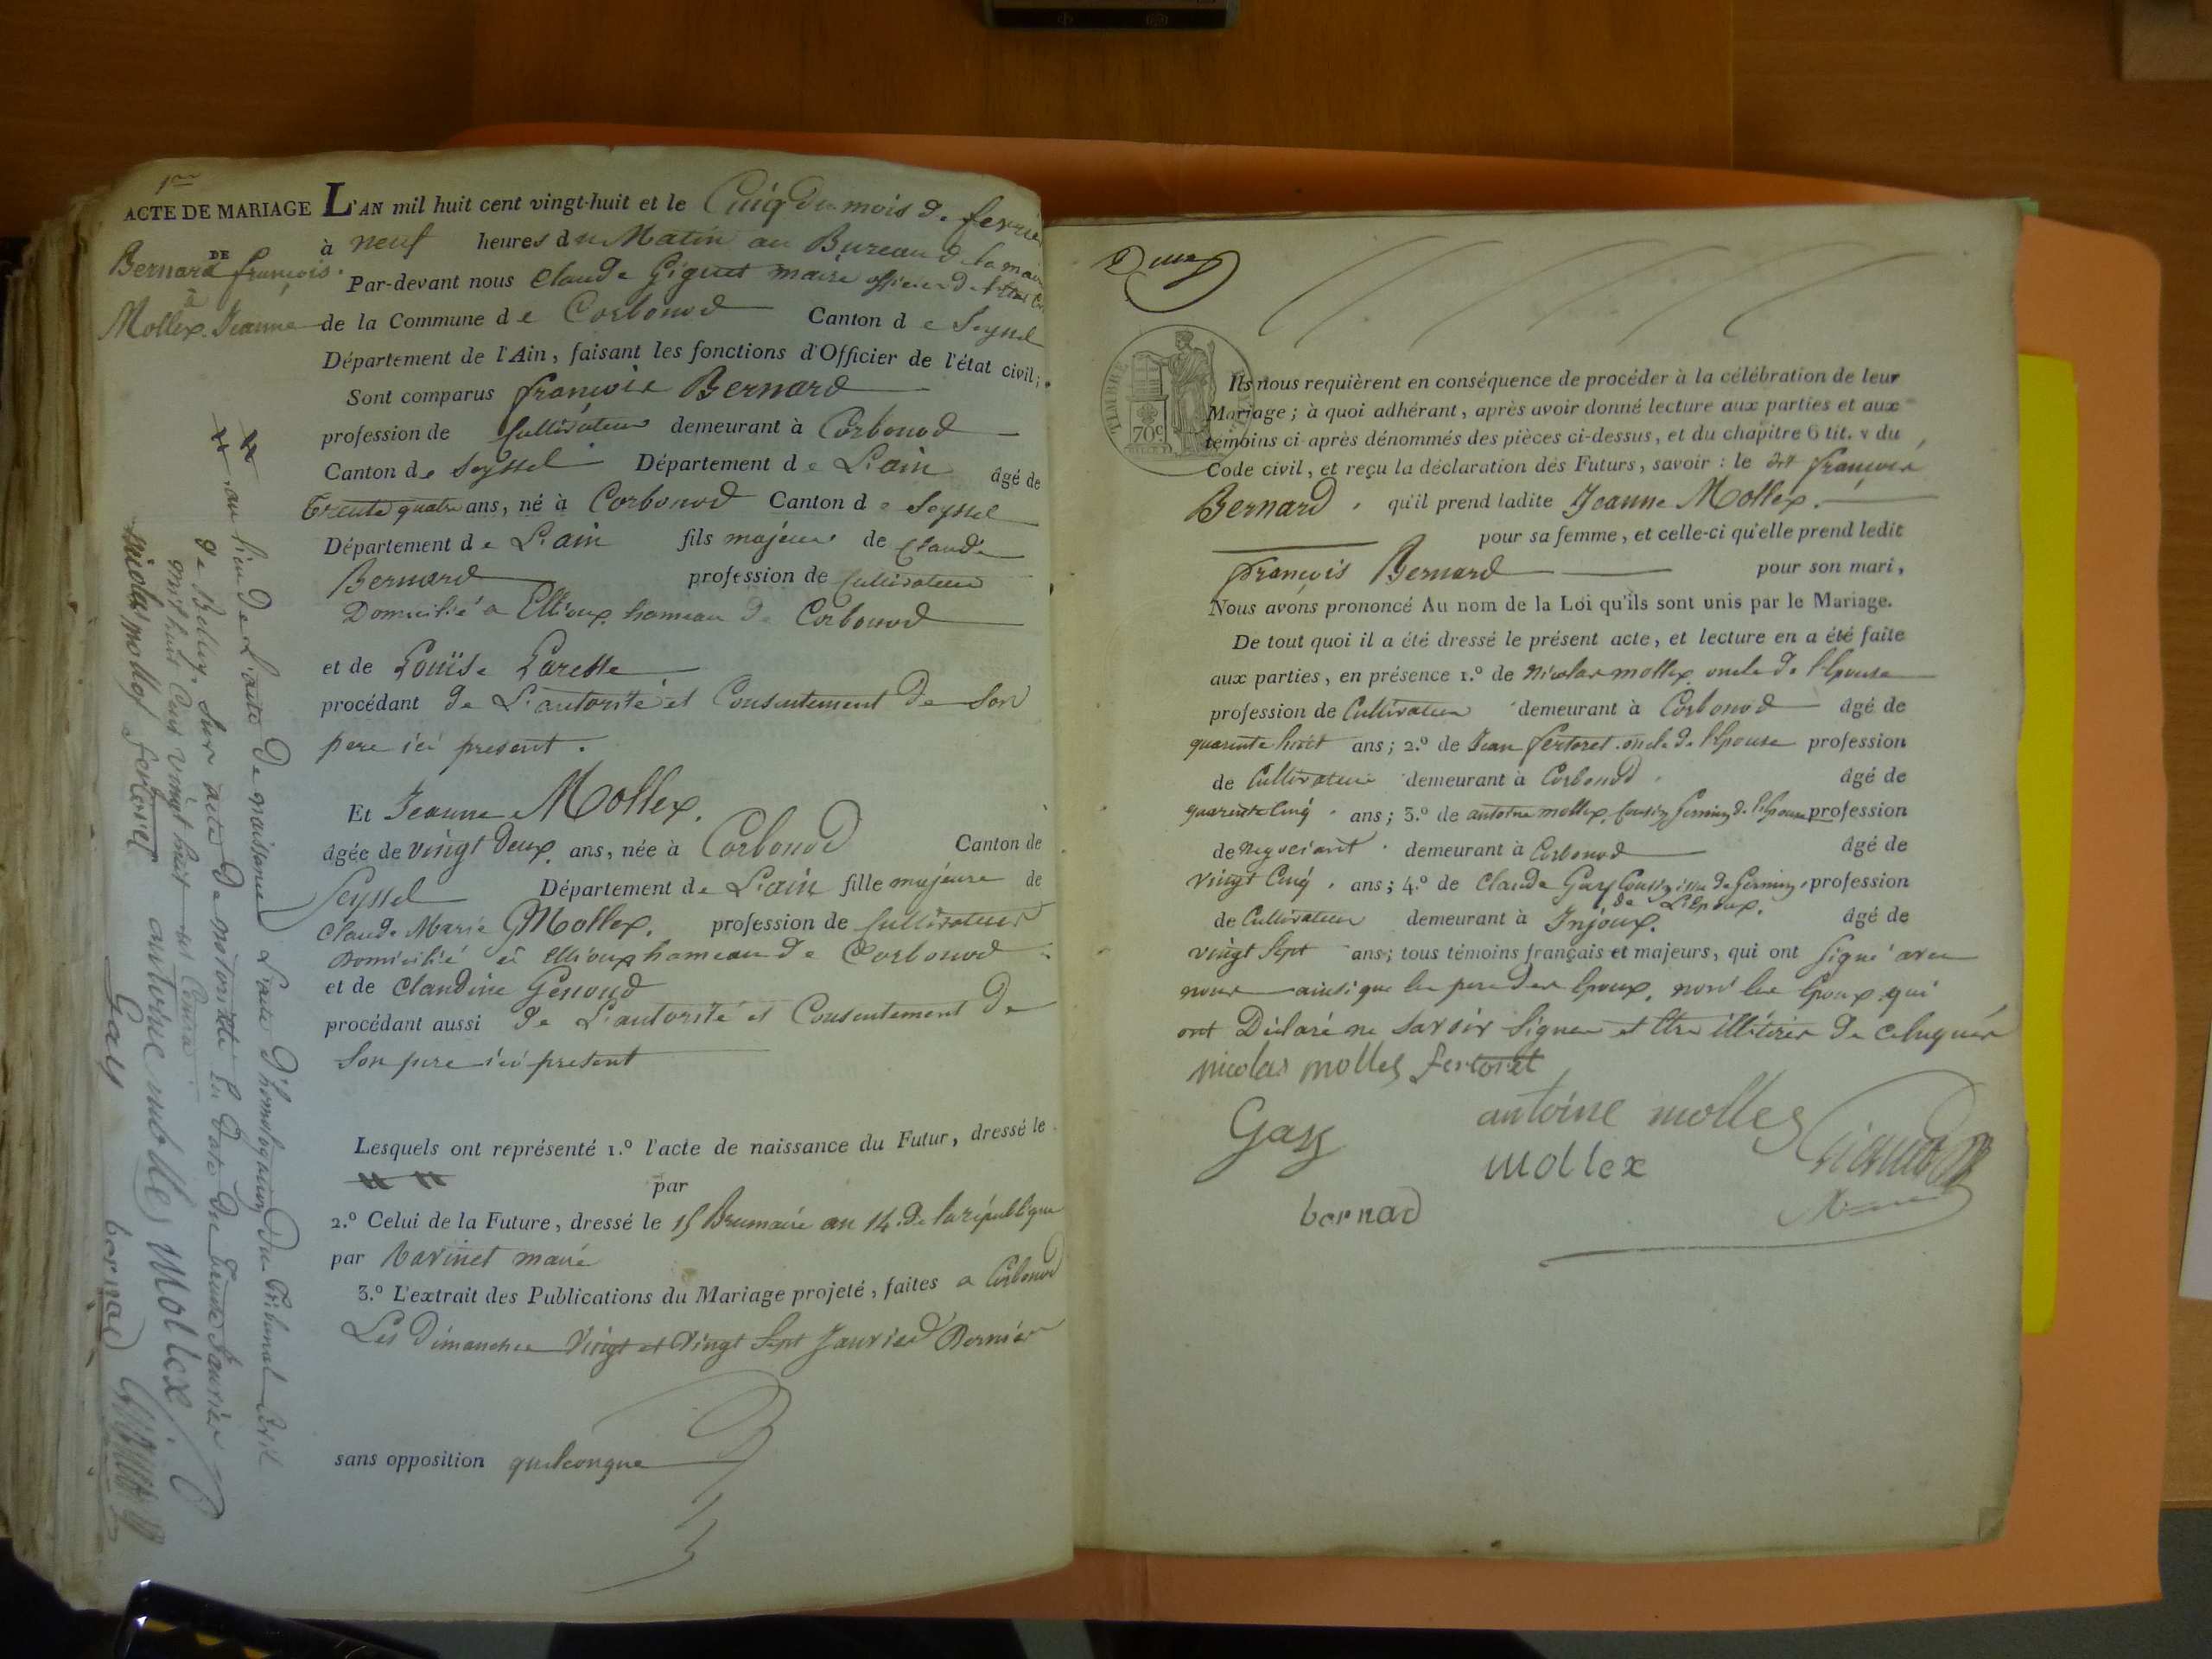 1er
ACTE DE MARIAGE
DE
Bernard françois
à
Mollex Jeanne
L'AN mil huit cent vingt-huit et le Cinq du mois de fevrier
à neuf heures du Matin au Bureau de la mairie
Par-devant nous Claude Giguet maire officier de l'état
de la Commune de Corbonod Canton de Seyssel
Département de l'Ain, faisant les fonctions d'Officier de l'état civil;
Sont comparus françois Bernard
profession de Cultivateur demeurant à Corbonod
Canton de Seyssel Département de L'ain âgé de
Trente quatre ans, né à Corbonod Canton de Seyssel
Département de L'ain fils majeur de Claude
Bernard profession de Cultivateur
Domicilié a Ellioux hameau de Corbonod
et de Louise Larelle
procédant de L'autorité et Consentement de Son
pere ici present.
Et Jeanne Mollex.
âgée de vingt Deux ans, née à Corbonod Canton de
Seyssel Département de L'ain fille majeure de
Claude Marie Mollex. profession de Cultivateur
Domicilié à Ellioux hameau de Corbonod
et de Claudine Genoud
procédant aussi de L'autorité et Consentement de
Son pere ici present
Lesquels ont représenté 1.º l'acte de naissance du Futur, dressé le
par
2.º Celui de la Future, dressé le 15 Brumaire an 14 de la république
par Varinet maire
3.º L'extrait des Publications du Mariage projeté, faites a Corbonod
Les Dimanches Vingt et Vingt Sept Janvier Dernier
sans opposition quelconque
au lieu de L'acte de naissance L'acte d'homologation Du Tribunal Civil
de Belley. Sur acte De notoriété En Date Du trente Janvier
mil huit Cent vingt huit
nicolas mollex fertoret antoine molles Mollex
Gay bernad
Deux
TIMBRE
70c
Ils nous requièrent en conséquence de procéder à la célébration de leur
Mariage; à quoi adhérant, après avoir donné lecture aux parties et aux
témoins ci après dénommés des pièces ci-dessus, et du chapitre 6 tit. v du
Code civil, et reçu la déclaration des Futurs, savoir : le dit françois
Bernard, qu'il prend ladite Jeanne Mollex.
pour sa femme, et celle-ci qu'elle prend ledit
françois Bernard pour son mari,
Nous avons prononcé Au nom de la Loi qu'ils sont unis par le Mariage.
De tout quoi il a été dressé le présent acte, et lecture en a été faite
aux parties, en présence 1.º de Nicolas mollex oncle de l'Epouse
profession de Cultivateur demeurant à Corbonod âgé de
quarente huit ans; 2.º de Jean fertoret oncle de l'Epouse profession
de Cultivateur demeurant à Corbonod âgé de
quarente Cinq ans; 3.º de antoine mollex Cousin Germain de l'Epouse profession
de Negociant demeurant à Corbonod âgé de
vingt Cinq ans; 4.º de Claude Gay Cousin issu de Germain profession
de L'Epoux.
de Cultivateur demeurant à Injoux. âgé de
vingt Sept ans; tous témoins français et majeurs, qui ont Signé avec
nous ainsi que les peres des Epoux, non les Epoux qui
ont Déclaré ne Savoir Signer et Etre illitérés de ce Enquis
nicolas molles fertoret
Gay
antoine molles
Mollex
bernad